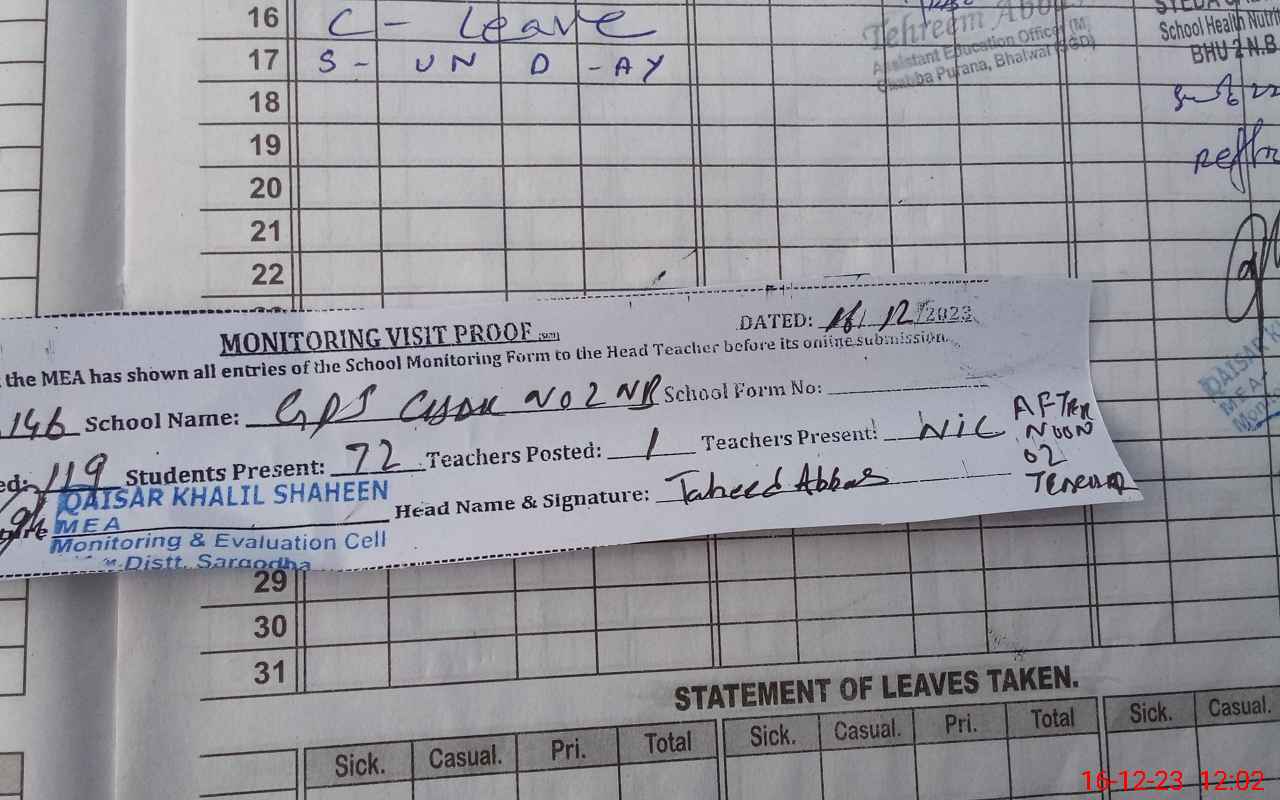 16 C - Leave
17 S - UN D - AY
18
19
20
21
22
Tehreem Abbas
Assistant Education Officer (M)
Purana, Bhalwal (SGD)
School Health Nutri
BHU 2 N.B
MONITORING VISIT PROOF
DATED: 16/12/2023
the MEA has shown all entries of the School Monitoring Form to the Head Teacher before its online submission.
146 School Name: GPS CHAK NO 2 NB School Form No:
ed: 119 Students Present: 72 Teachers Posted: 1 Teachers Present: NIC AFTER NOON 02
QAISAR KHALIL SHAHEEN
MEA
Monitoring & Evaluation Cell
Distt. Sargodha
Head Name & Signature: Taheed Abbas
QAISAR K
MEA
Moni
29
30
31
STATEMENT OF LEAVES TAKEN.
Sick. Casual. Pri. Total Sick. Casual. Pri. Total Sick. Casual.
16-12-23 12:02